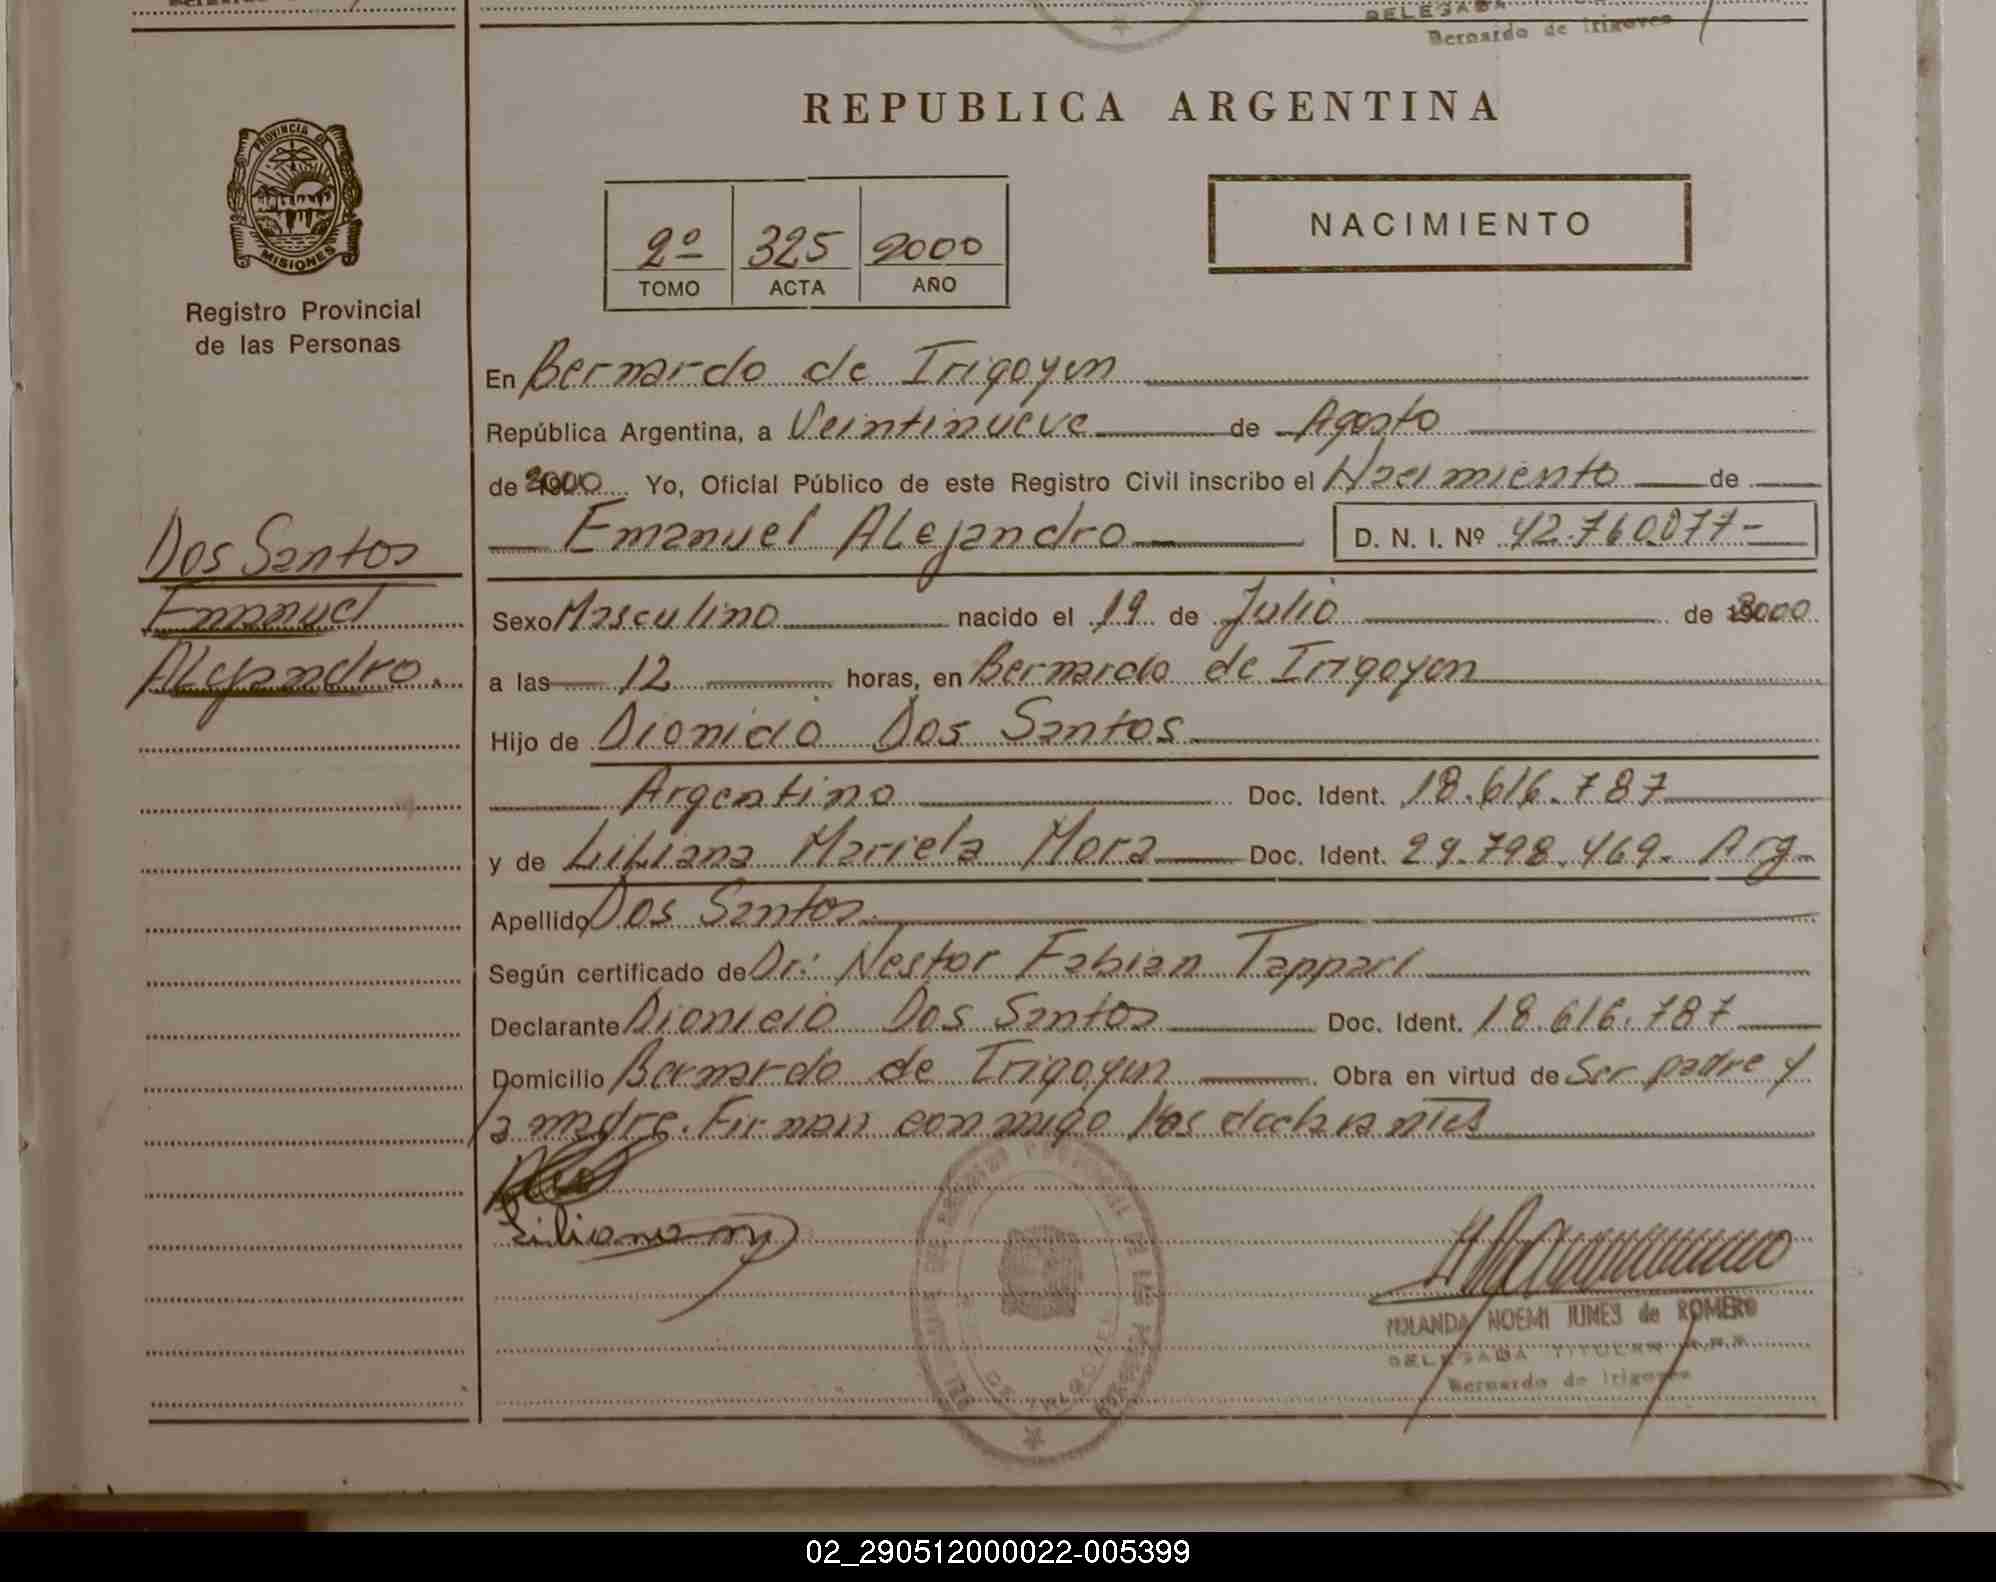 DELEGADA
Bernardo de Irigoyen
REPUBLICA ARGENTINA
PROVINCIA DE
MISIONES
Registro Provincial
de las Personas
2º 325 2000
TOMO ACTA AÑO
NACIMIENTO
En Bernardo de Irigoyen
República Argentina, a Veintinueve de Agosto
de 2000 Yo, Oficial Público de este Registro Civil inscribo el Nacimiento de
Emanuel Alejandro D. N. I. Nº 42.760.077-
Dos Santos
Emanuel
Alejandro.
Sexo Masculino nacido el 19 de Julio de 2000
a las 12 horas, en Bernardo de Irigoyen
Hijo de Dionicio Dos Santos
Argentino Doc. Ident. 18.616.787
y de Liliana Mariela Mora Doc. Ident. 29.798.469. Arg.
Apellido Dos Santos.
Según certificado de Dr: Nestor Fabian Tappari
Declarante Dionicio Dos Santos Doc. Ident. 18.616.787
Domicilio Bernardo de Irigoyen Obra en virtud de Ser padre y
la madre. Firman conmigo los declarantes
Liliana m
YOLANDA NOEMI JUNES de ROMERO
DELEGADA TITULAR
Bernardo de Irigoyen
02_290512000022-005399